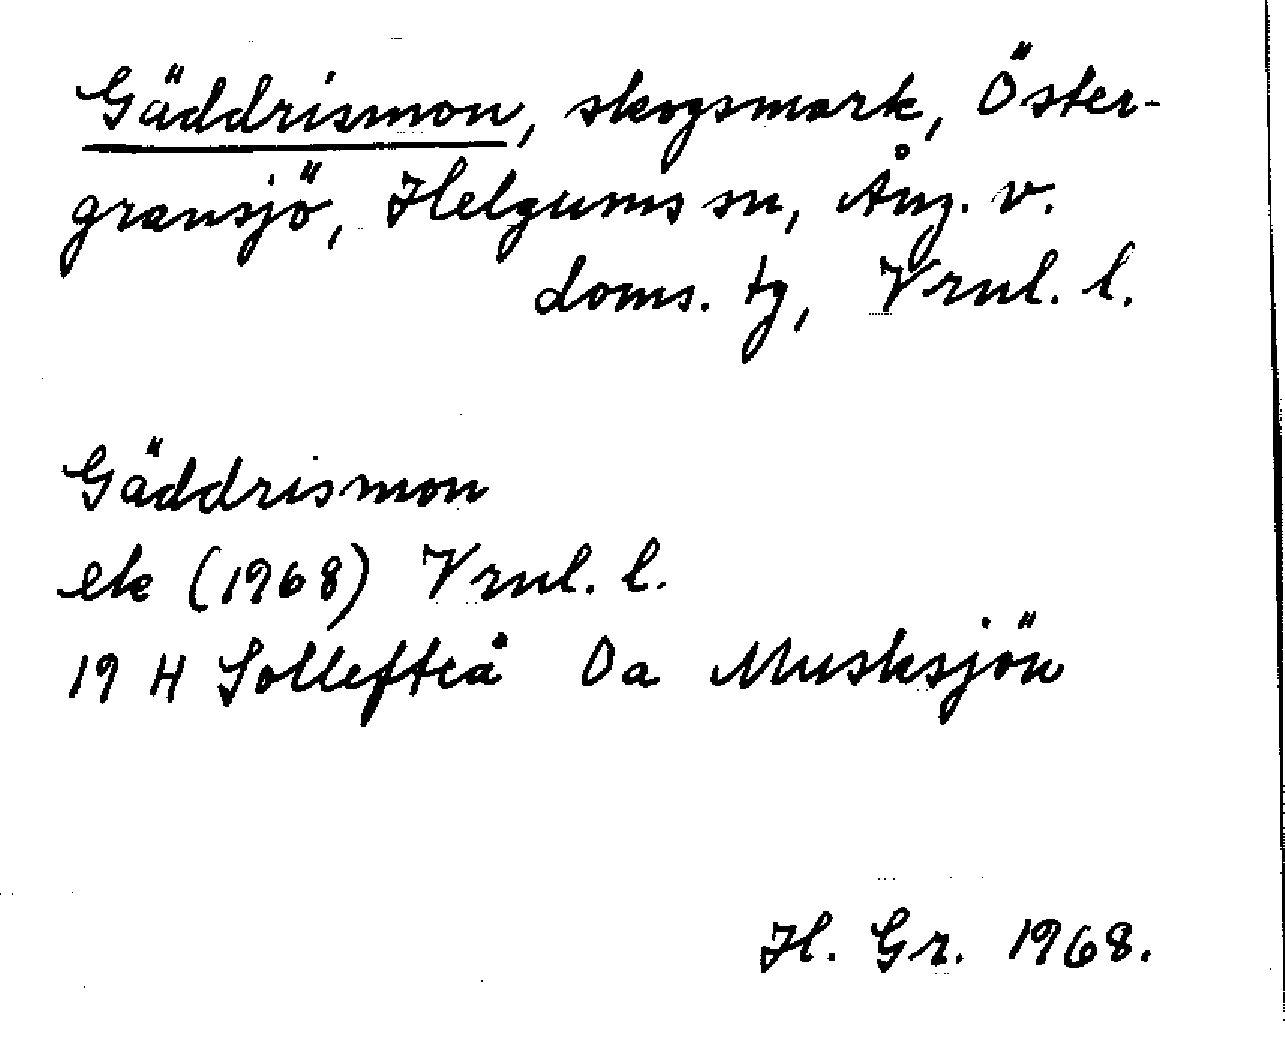 Gäddrismon, skogsmark, Öster-
gransjö, Helgums sn, Ång. v.
doms. tg, Vrnl. l.
Gäddrismon
ek (1968) Vrnl. l.
19 H Sollefteå 0a Musksjön
H. Gr. 1968.